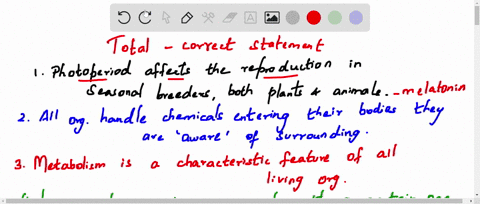 Total - correct statement
1. Photoperiod affects the reproduction in
seasonal breeders, both plants & animals. - melatonin
2. All org. handle chemicals entering their bodies they
are 'aware' of surrounding.
3. Metabolism is a characteristic feature of all
living org.